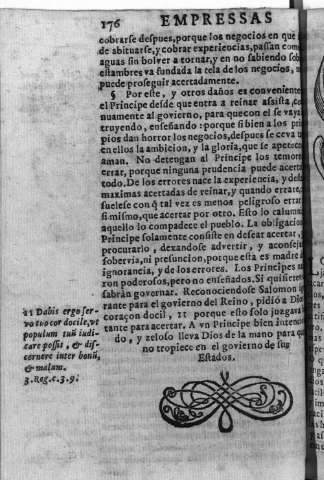 176 EMPRESSAS
cobrarse despues, porque los negocios en que
de abituarse, y cobrar experiencias, passan com
aguas sin bolver a tornar, y en no sabiendo sob
estambres va fundada la tela de los negocios,
puede proseguir acertadamente.
§ Por este, y otros daños es conveniente
el Principe desde que entra a reinar assista,
nuamente al govierno, para que con el se vaya
truyendo, enseñando: porque si bien a los
pios dan horror los negocios, despues se ceva
en ellos la ambicion, y la gloria, que se apetece
aman. No detengan al Principe los temor
errar, porque ninguna prudencia puede acert
todo. De los errores nace la experiencia, y des
maximas acertadas de reinar, y quando errare,
suelese con que tal vez es menos peligroso errar
si mismo, que acertar por otro. Esto lo calum
aquello lo compadece el pueblo. La obligacion
Principe solamente consiste en desear acertar,
procurarlo, dexandose advertir, y aconsejar
sobervia, ni presuncion, porque esta es madre
ignorancia, y de los errores. Los Principes
ron poderosos, pero no enseñados. Si quisiere
sabràn governar. Reconociendose Salomon
rante para el govierno del Reino, pidiò a Dios
coraçon docil, 11 porque esto solo juzgava
tante para acertar. A vn Principe bien intenci
do, y zeloso lleva Dios de la mano para que
no tropiece en el govierno de sus
Estados.
11 Dabis ergo ser-
vo tuo cor docile, vt
populum tuũ iudi-
care possit, & dis-
cernere inter bonũ,
& malum.
3. Reg. c. 3. 9.